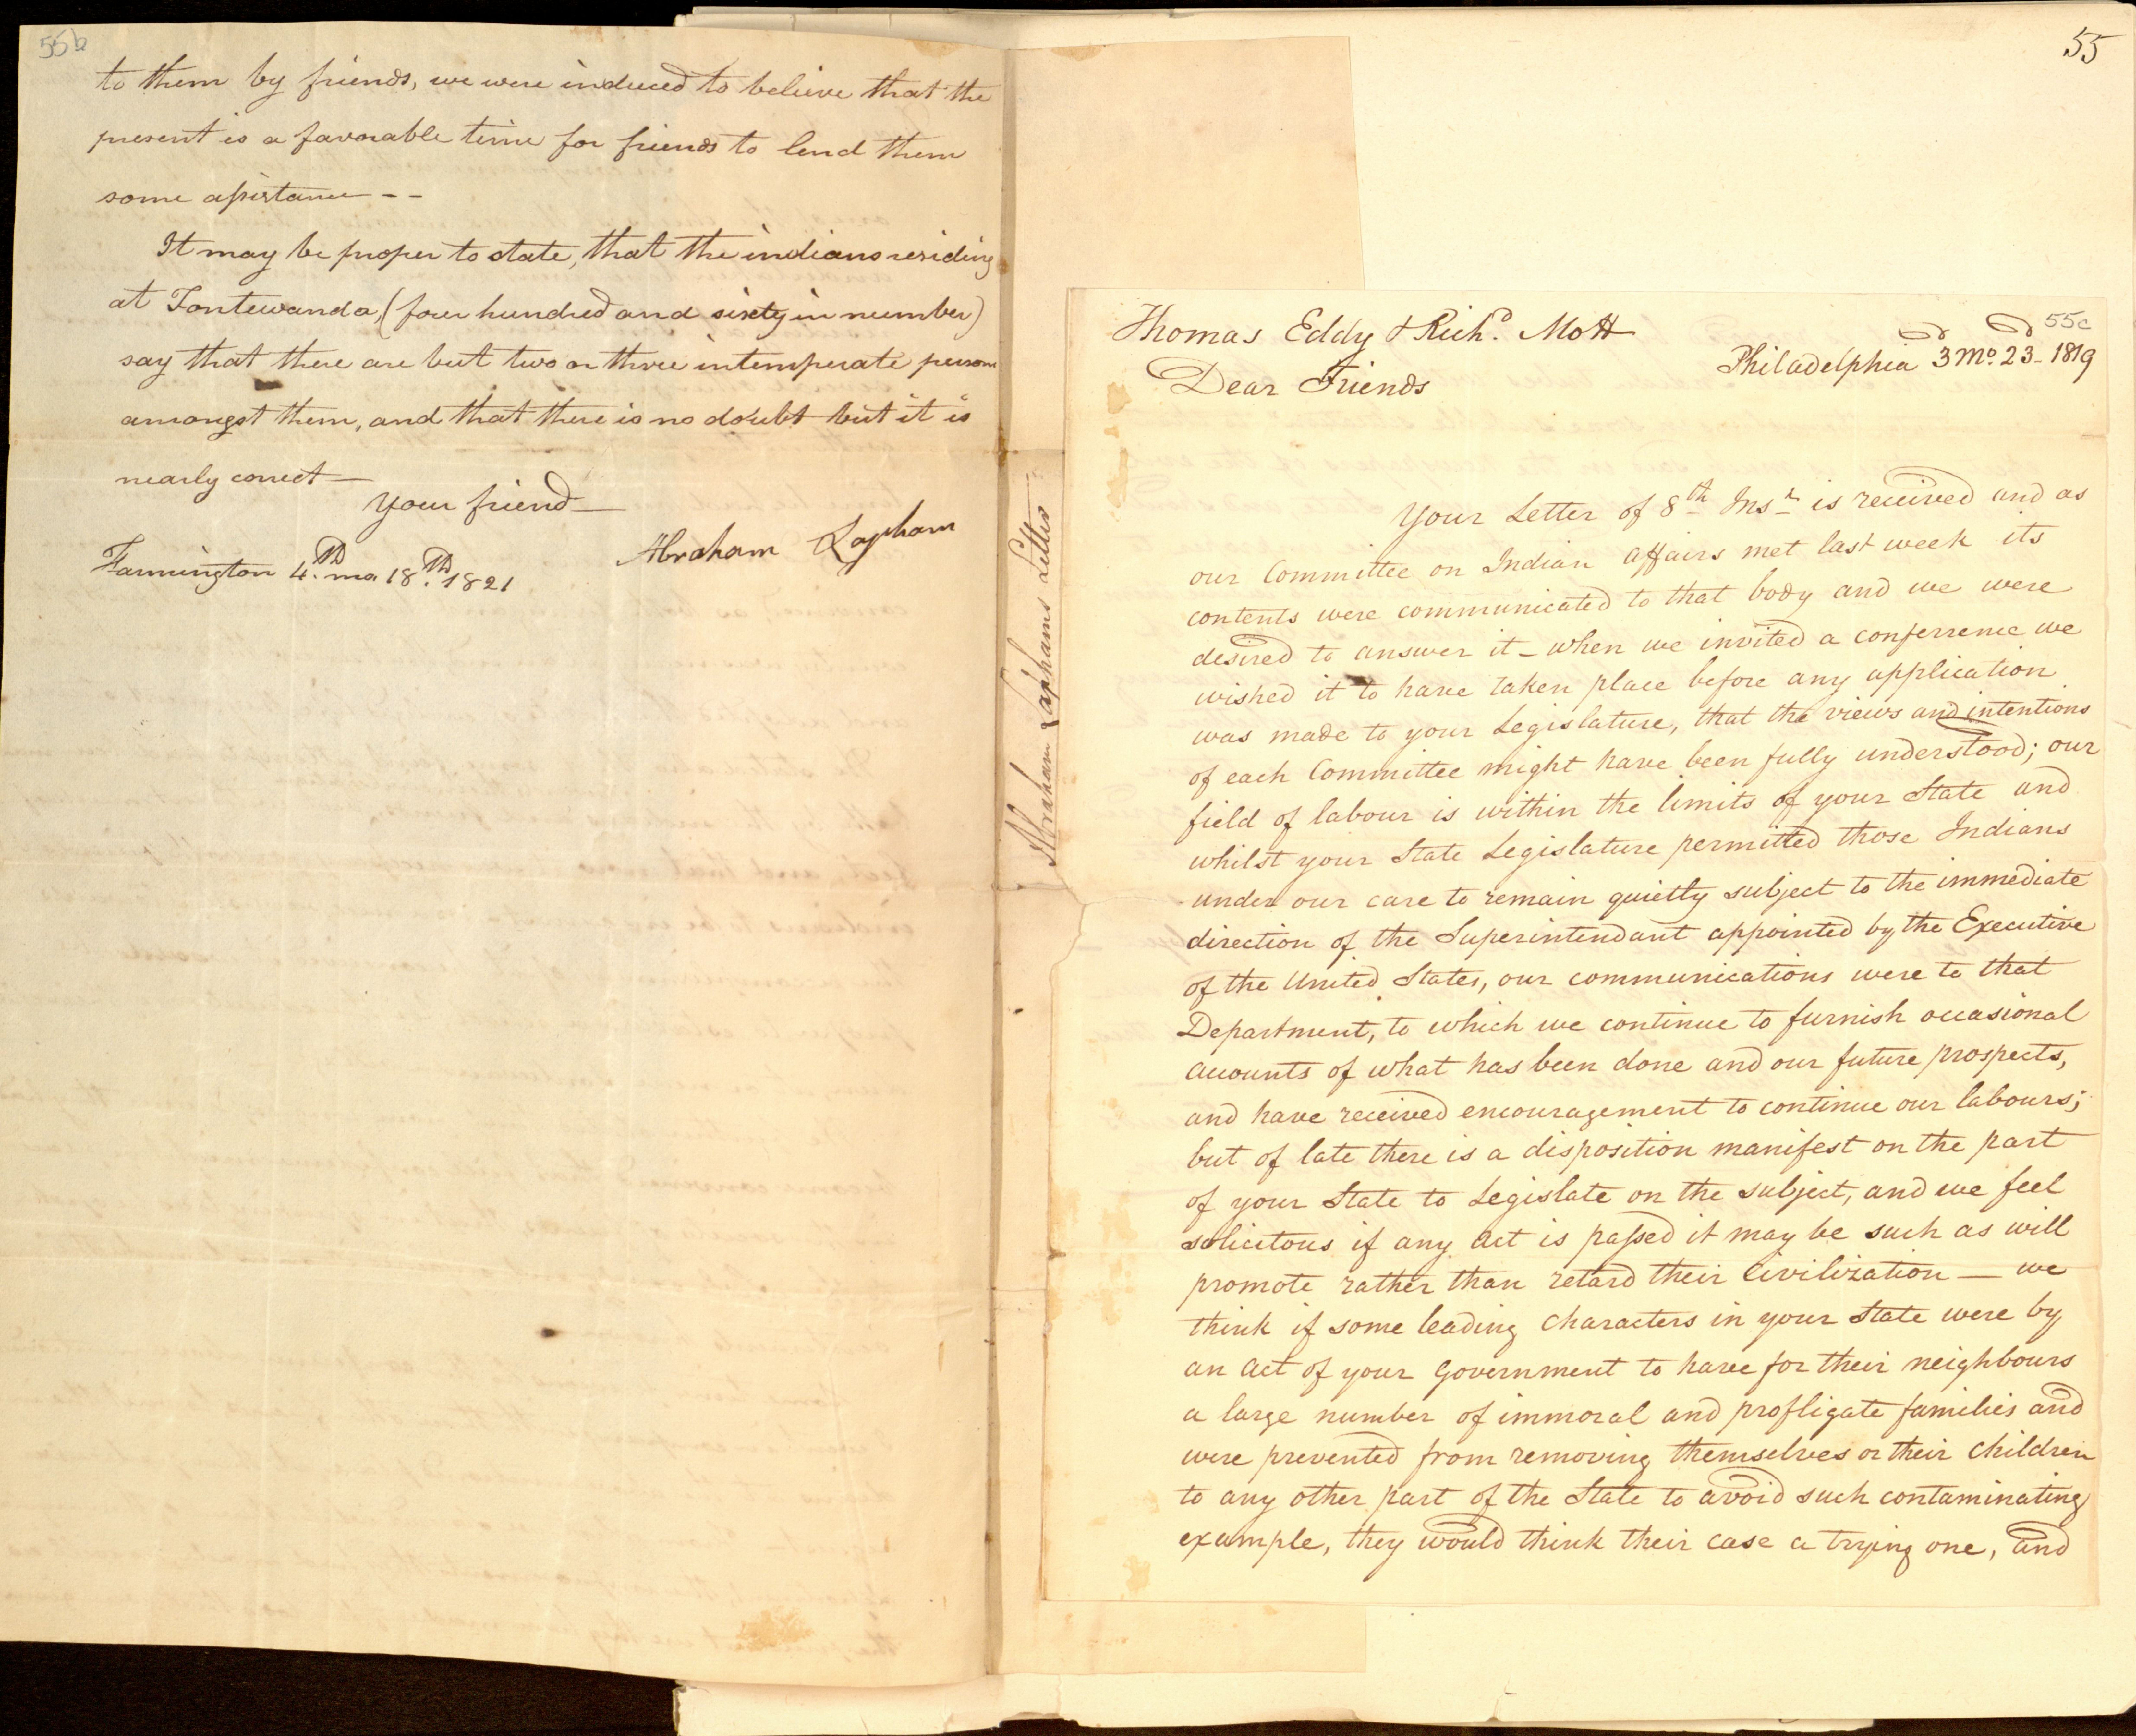 55b
to them by friends, we were induced to believe that the
present is a favorable time for friends to lend them
some assistance - -
It may be proper to state, that the indians residing
at Tontewanda, (four hundred and sixty in number)
say that there are but two or three intemperate persons
amongst them, and that there is no doubt but it is
nearly correct —
Your friend —
Abraham Lapham
Farmington 4.th mo 18.th 1821
Abraham Laphams Letter
55
55c
Thomas Eddy & Richd. Mott
Philadelphia 3 Mo. 23 - 1819
Dear Friends
Your Letter of 8th Inst. is received and as
our Committee on Indian affairs met last week its
contents were communicated to that body and we were
desired to answer it - when we invited a conferrence we
wished it to have taken place before any application
was made to your Legislature, that the views and intentions
of each Committee might have been fully understood; our
field of labour is within the limits of your State and
whilst your State Legislature permitted those Indians
under our care to remain quietly subject to the immediate
direction of the Superintendant appointed by the Executive
of the United States, our communications were to that
Department, to which we continue to furnish occasional
accounts of what has been done and our future prospects,
and have received encouragement to continue our labours;
but of late there is a disposition manifest on the part
of your State to Legislate on the subject, and we feel
solicitous if any Act is passed it may be such as will
promote rather than retard their Civilization — we
think if some leading characters in your State were by
an Act of your Government to have for their neighbours
a large number of immoral and profligate families and
were prevented from removing themselves or their children
to any other part of the State to avoid such contaminating
example, they would think their case a trying one, and